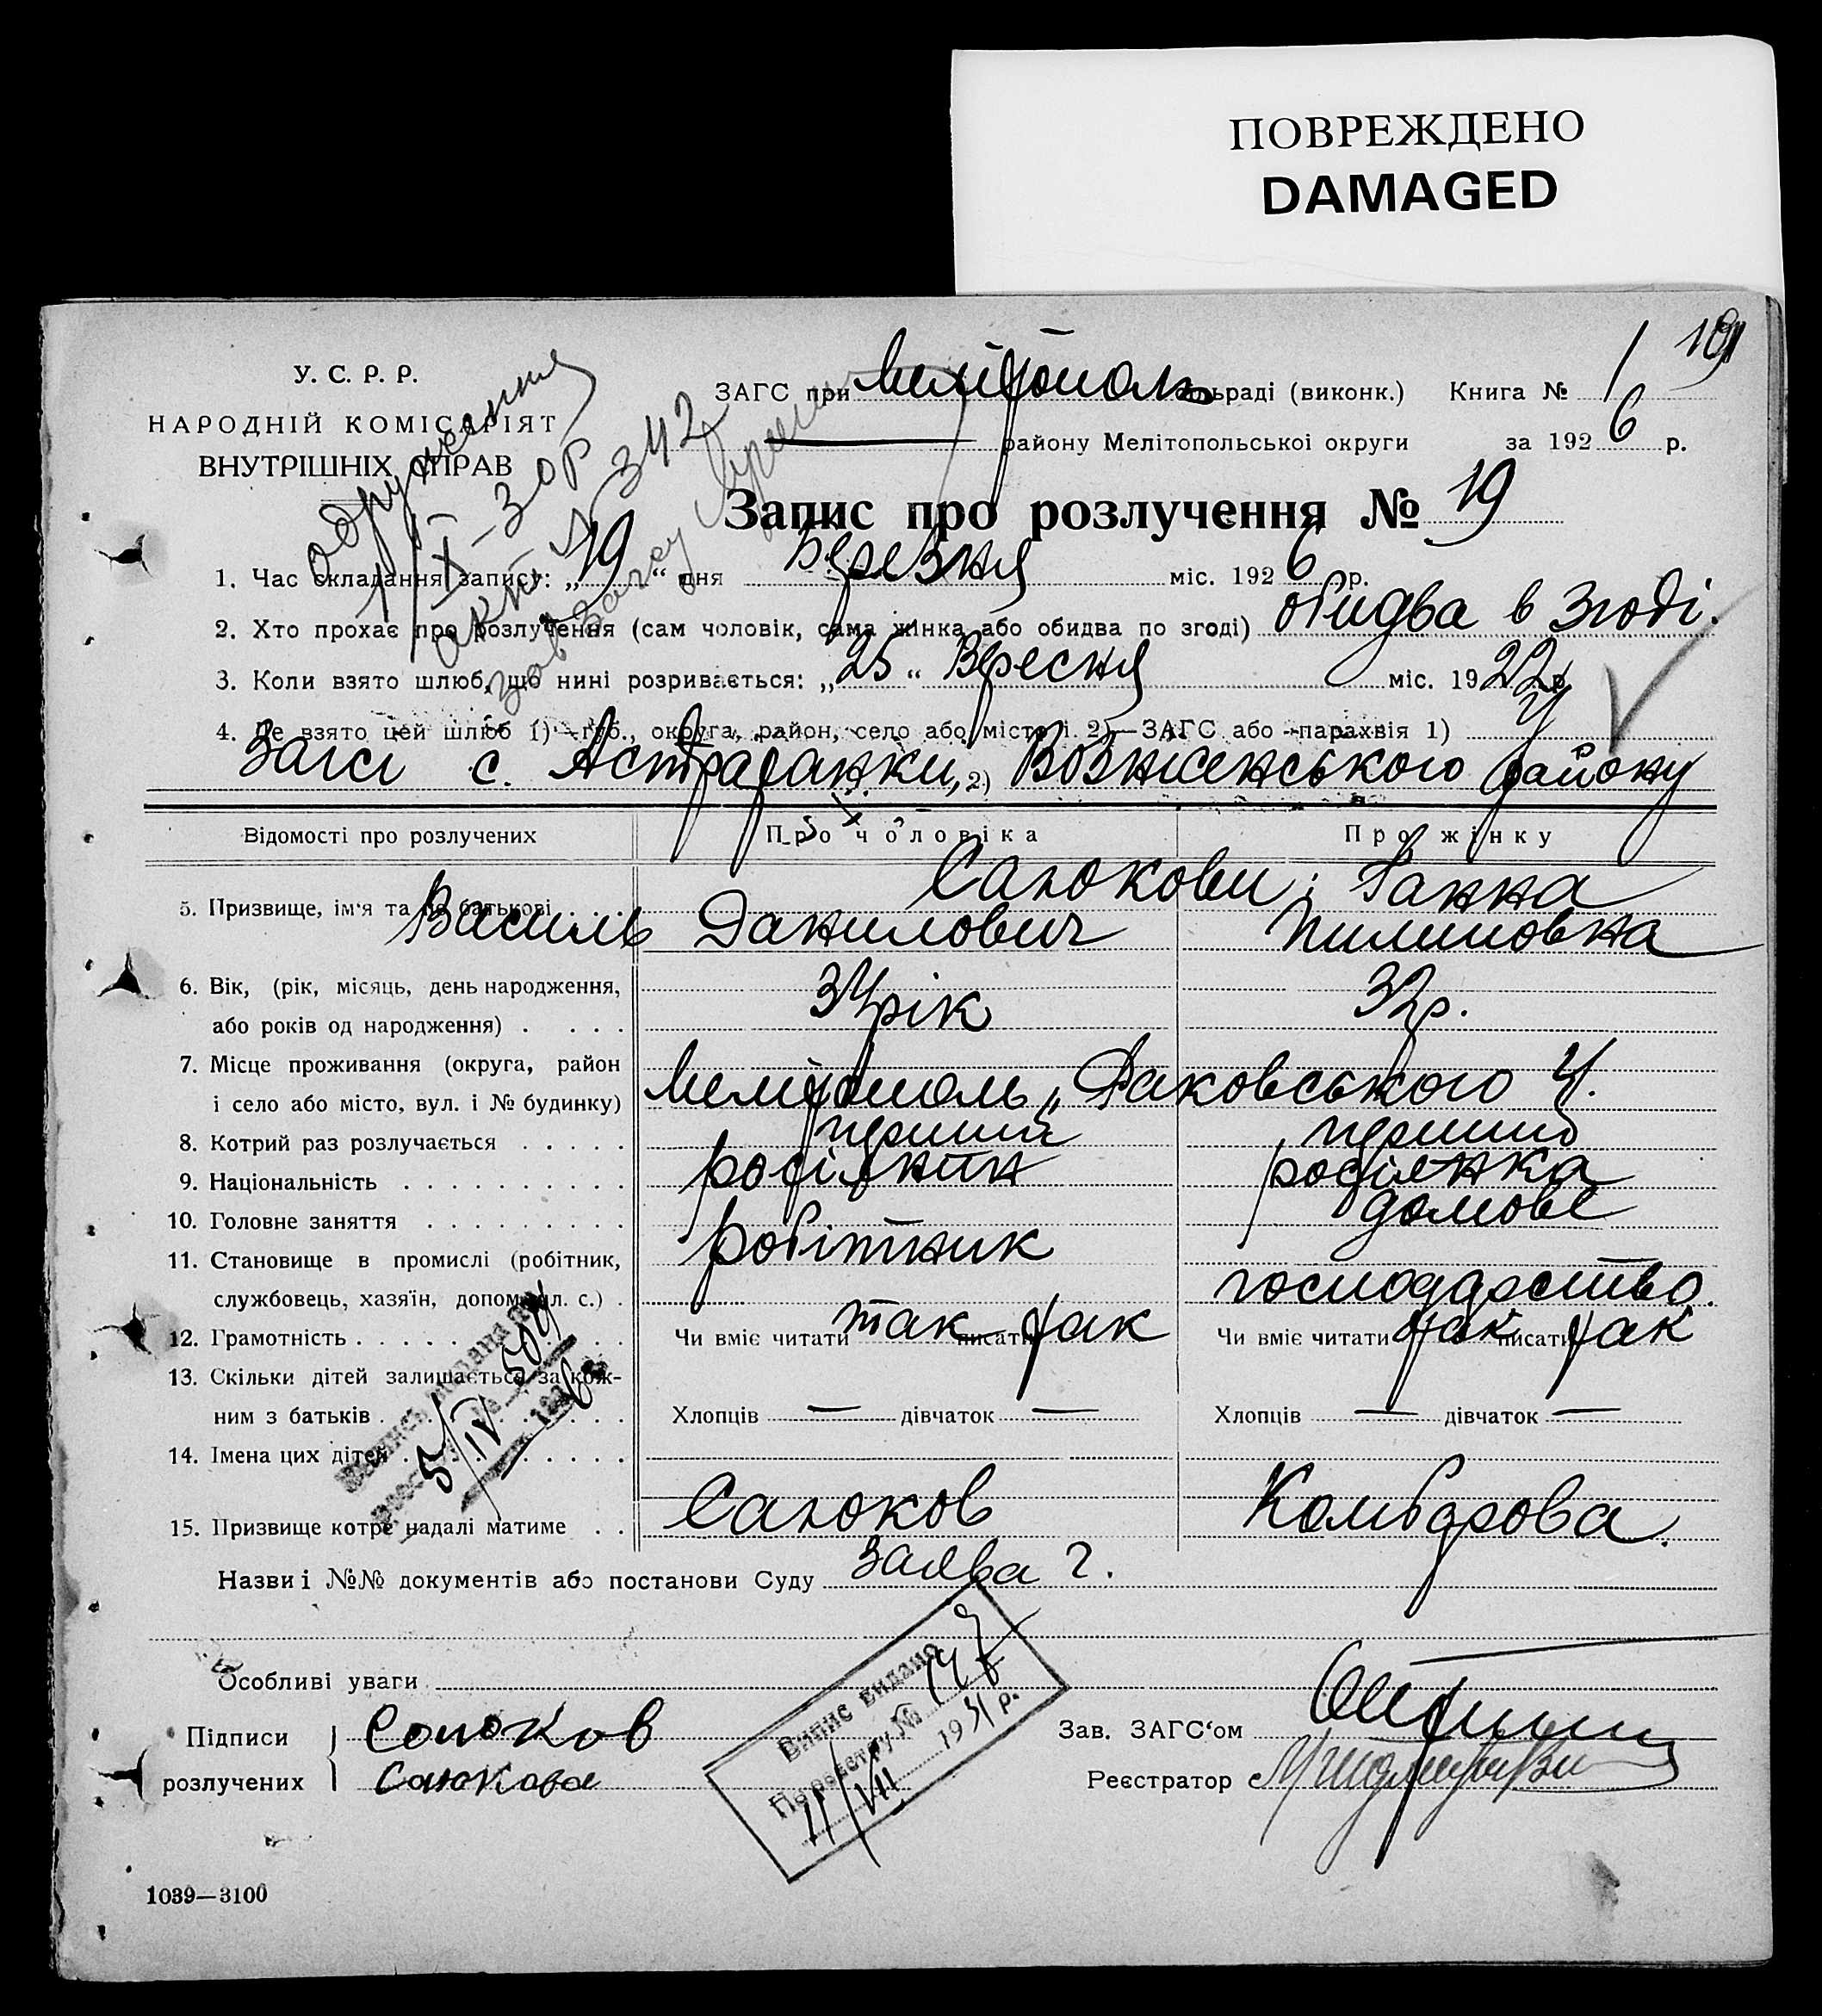 ПОВРЕЖДЕНО
DAMAGED
191
У. С. Р. Р.
НАРОДНІЙ КОМІСАРІЯТ
ВНУТРІШНІХ СПРАВ
одруження
1/IX-30р
акт № 342
ЗАГС при Мелітополь міськраді (виконк.) Книга № 1
району Мелітопольської округи за 1926 р.
Запис про розлучення № 19
1. Час складання запису: „19“ дня Березня міс. 1926 р.
2. Хто прохає про розлучення (сам чоловік, сама жінка або обидва по згоді) обидва в згоді.
3. Коли взято шлюб, що нині розривається: „25“ Вересня міс. 1922 р.
4. Де взято цей шлюб 1)—губ., округа, район, село або місто і 2)—ЗАГС або парахвія 1) у
Загсі с. Астраханки, 2) Возненського району
Відомості про розлучених Про чоловіка Про жінку
5. Призвище, ім'я та по батькові Саюкови: Ганна
Василь Данилович Пилиповна
6. Вік, (рік, місяць, день народження,
або років од народження) . . . . 34 рік 32р.
7. Місце проживання (округа, район
і село або місто, вул. і № будинку) Мелітополь, Раковського 4.
8. Котрий раз розлучається . . . . . перший перший
9. Національність . . . . . . . . . . росіянин росіянка
10. Головне заняття . . . . . . . . . домове
11. Становище в промислі (робітник, робітник
службовець, хазяїн, допом. чл. с.) . господарство.
12. Грамотність . . . . . . . . . . . Чи вміє читати так писати так Чи вміє читати так писати так
13. Скільки дітей залишається за кож-
ним з батьків . . . . . . . . . . Хлопців — дівчаток — Хлопців — дівчаток —
14. Імена цих дітей . . . . . . . . .
15. Призвище котре надалі матиме . . Саюков Камбарова.
Назви і №№ документів або постанови Суду Заява 2.
Особливі уваги
Підписи Саюков
розлучених Саюкова
Випис видано
По реєстру № 147
11/VII 1931 р.
Зав. ЗАГС'ом
Реєстратор
1039—3100